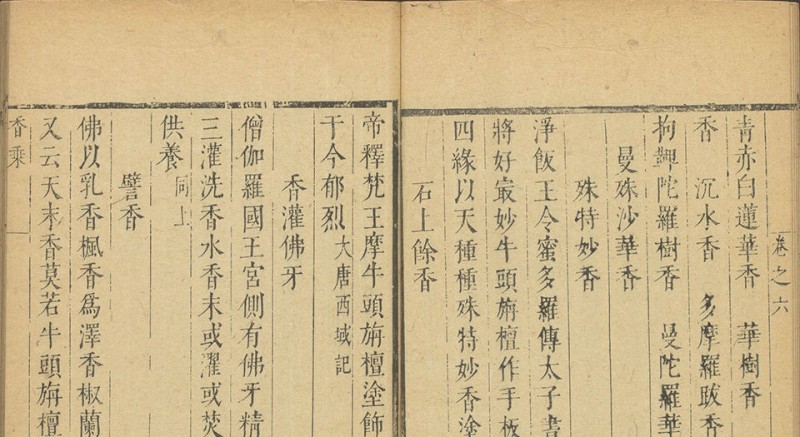 卷之六
青赤白蓮華香　華樹香
香　沉水香　多摩羅跋香
拘鞞陀羅樹香　曼陀羅華
曼殊沙華香
殊特妙香
淨飯王令蜜多羅傳太子書
將好最妙牛頭旃檀作手板
四緣以天種種殊特妙香塗
石上餘香
帝釋梵王摩牛頭旃檀塗飾
于今郁烈大唐西域記
香灌佛牙
僧伽羅國王宮側有佛牙精
三灌洗香水香末或濯或焚
供養同上
譬香
佛以乳香楓香爲澤香椒蘭
又云天末香莫若牛頭旃檀
香乘